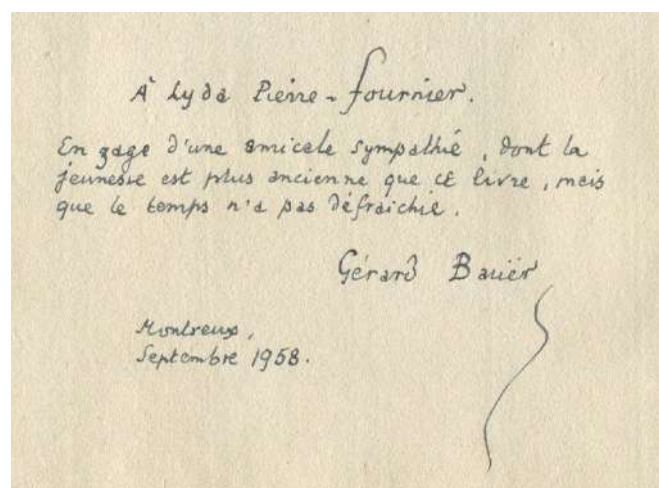 À Lyda Pierre-Fournier.
En gage d'une amicale sympathie, dont la
jeunesse est plus ancienne que ce livre, mais
que le temps n'a pas défraîchie.
Gérard Bauër
Montreux,
Septembre 1958.